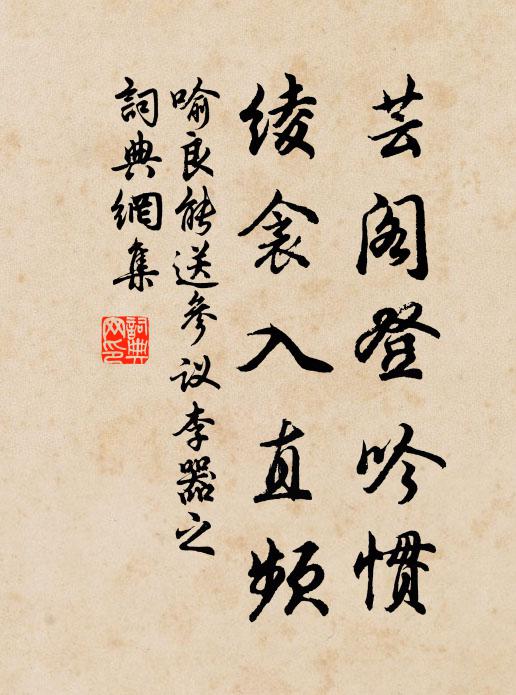 芸阁登吟惯
绫衾入直频
喻良能送参议李器之
詞典網集
詞典網印